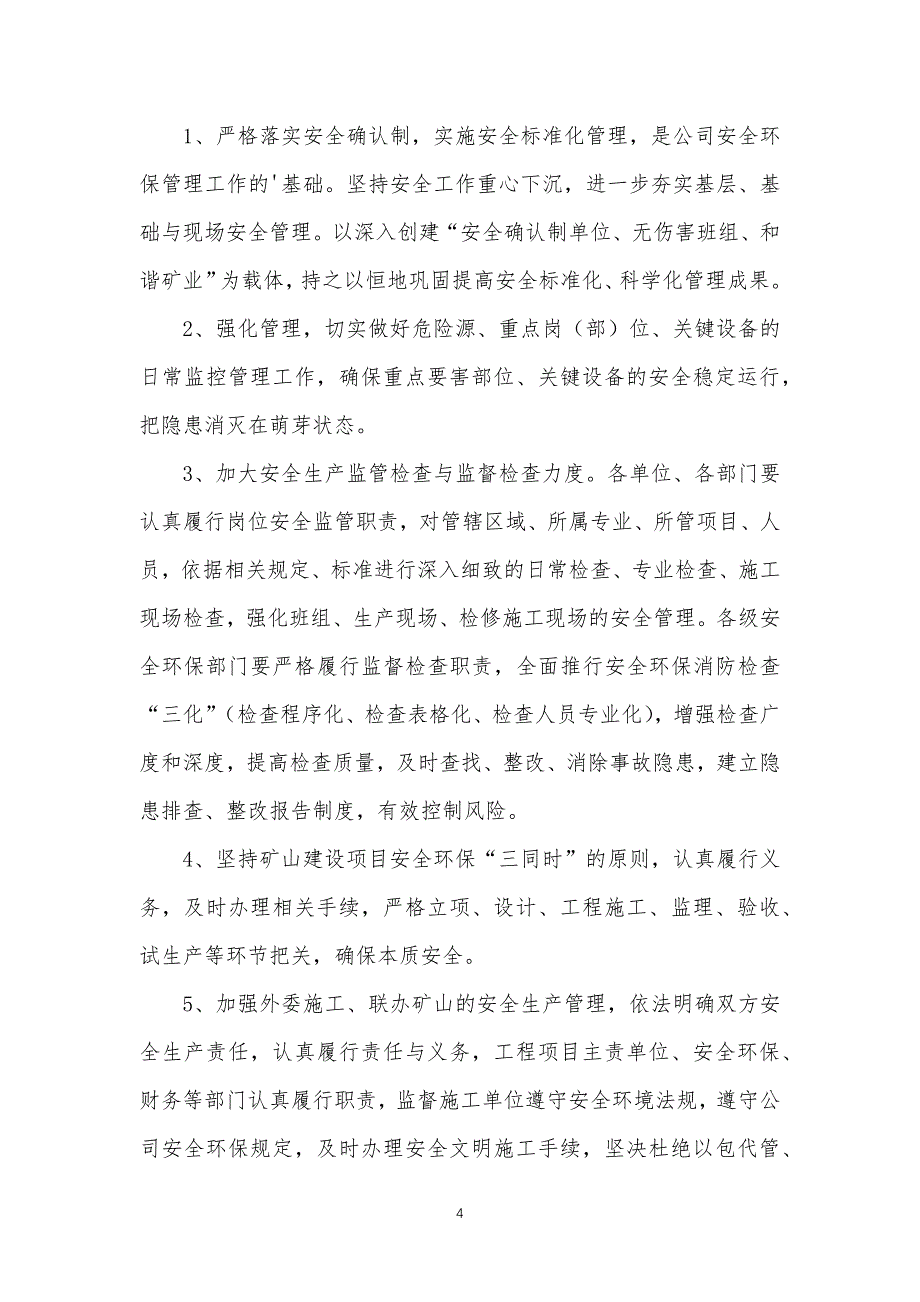 1、严格落实安全确认制，实施安全标准化管理，是公司安全环
保管理工作的'基础。坚持安全工作重心下沉，进一步夯实基层、基
础与现场安全管理。以深入创建“安全确认制单位、无伤害班组、和
谐矿业”为载体，持之以恒地巩固提高安全标准化、科学化管理成果。
2、强化管理，切实做好危险源、重点岗（部）位、关键设备的
日常监控管理工作，确保重点要害部位、关键设备的安全稳定运行，
把隐患消灭在萌芽状态。
3、加大安全生产监管检查与监督检查力度。各单位、各部门要
认真履行岗位安全监管职责，对管辖区域、所属专业、所管项目、人
员，依据相关规定、标准进行深入细致的日常检查、专业检查、施工
现场检查，强化班组、生产现场、检修施工现场的安全管理。各级安
全环保部门要严格履行监督检查职责，全面推行安全环保消防检查
“三化”（检查程序化、检查表格化、检查人员专业化），增强检查广
度和深度，提高检查质量，及时查找、整改、消除事故隐患，建立隐
患排查、整改报告制度，有效控制风险。
4、坚持矿山建设项目安全环保“三同时”的原则，认真履行义
务，及时办理相关手续，严格立项、设计、工程施工、监理、验收、
试生产等环节把关，确保本质安全。
5、加强外委施工、联办矿山的安全生产管理，依法明确双方安
全生产责任，认真履行责任与义务，工程项目主责单位、安全环保、
财务等部门认真履行职责，监督施工单位遵守安全环境法规，遵守公
司安全环保规定，及时办理安全文明施工手续，坚决杜绝以包代管、
4